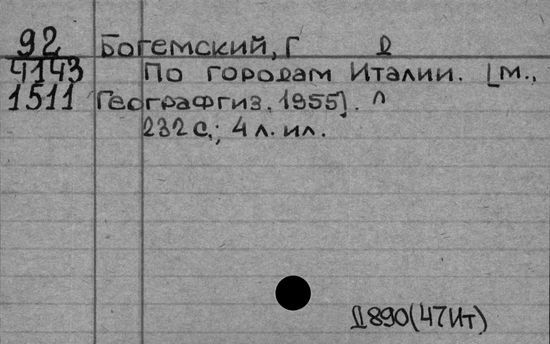 92 Богемский, Г
4143 По городам Италии. [м.,
1511 Географгиз. 1955]. л
232 с.; 4 л. ил.
Д890(47Ит)